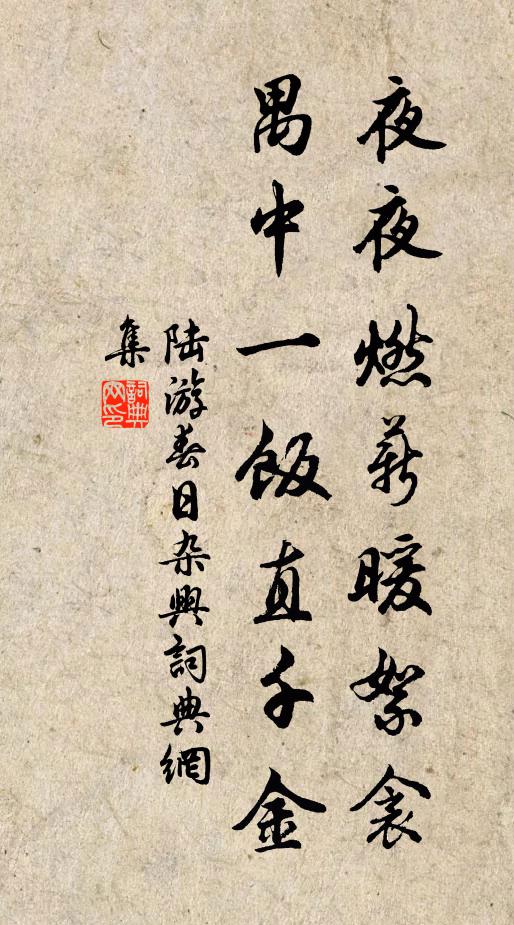 夜夜燃薪暖絮衾
禺中一飯直千金
陆游春日杂興詞典網
集
詞典網印